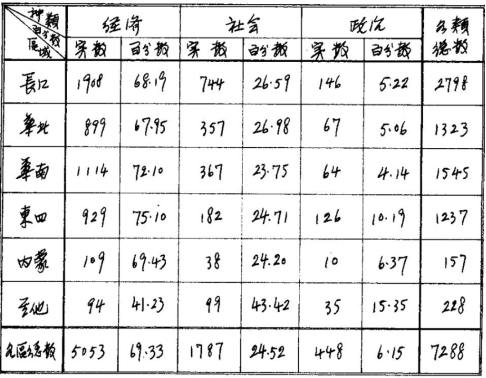 種類 百分数 區域 經济 社会 政治 各類總数
実数 百分数 実数 百分数 実数 百分数
長江 1908 68.19 744 26.59 146 5.22 2798
華北 899 67.95 357 26.98 67 5.06 1323
華南 1114 72.10 367 23.75 64 4.14 1545
東四 929 75.10 182 24.71 126 10.19 1237
内蒙 109 69.43 38 24.20 10 6.37 157
其他 94 41.23 99 43.42 35 15.35 228
各區總数 5053 69.33 1787 24.52 448 6.15 7288